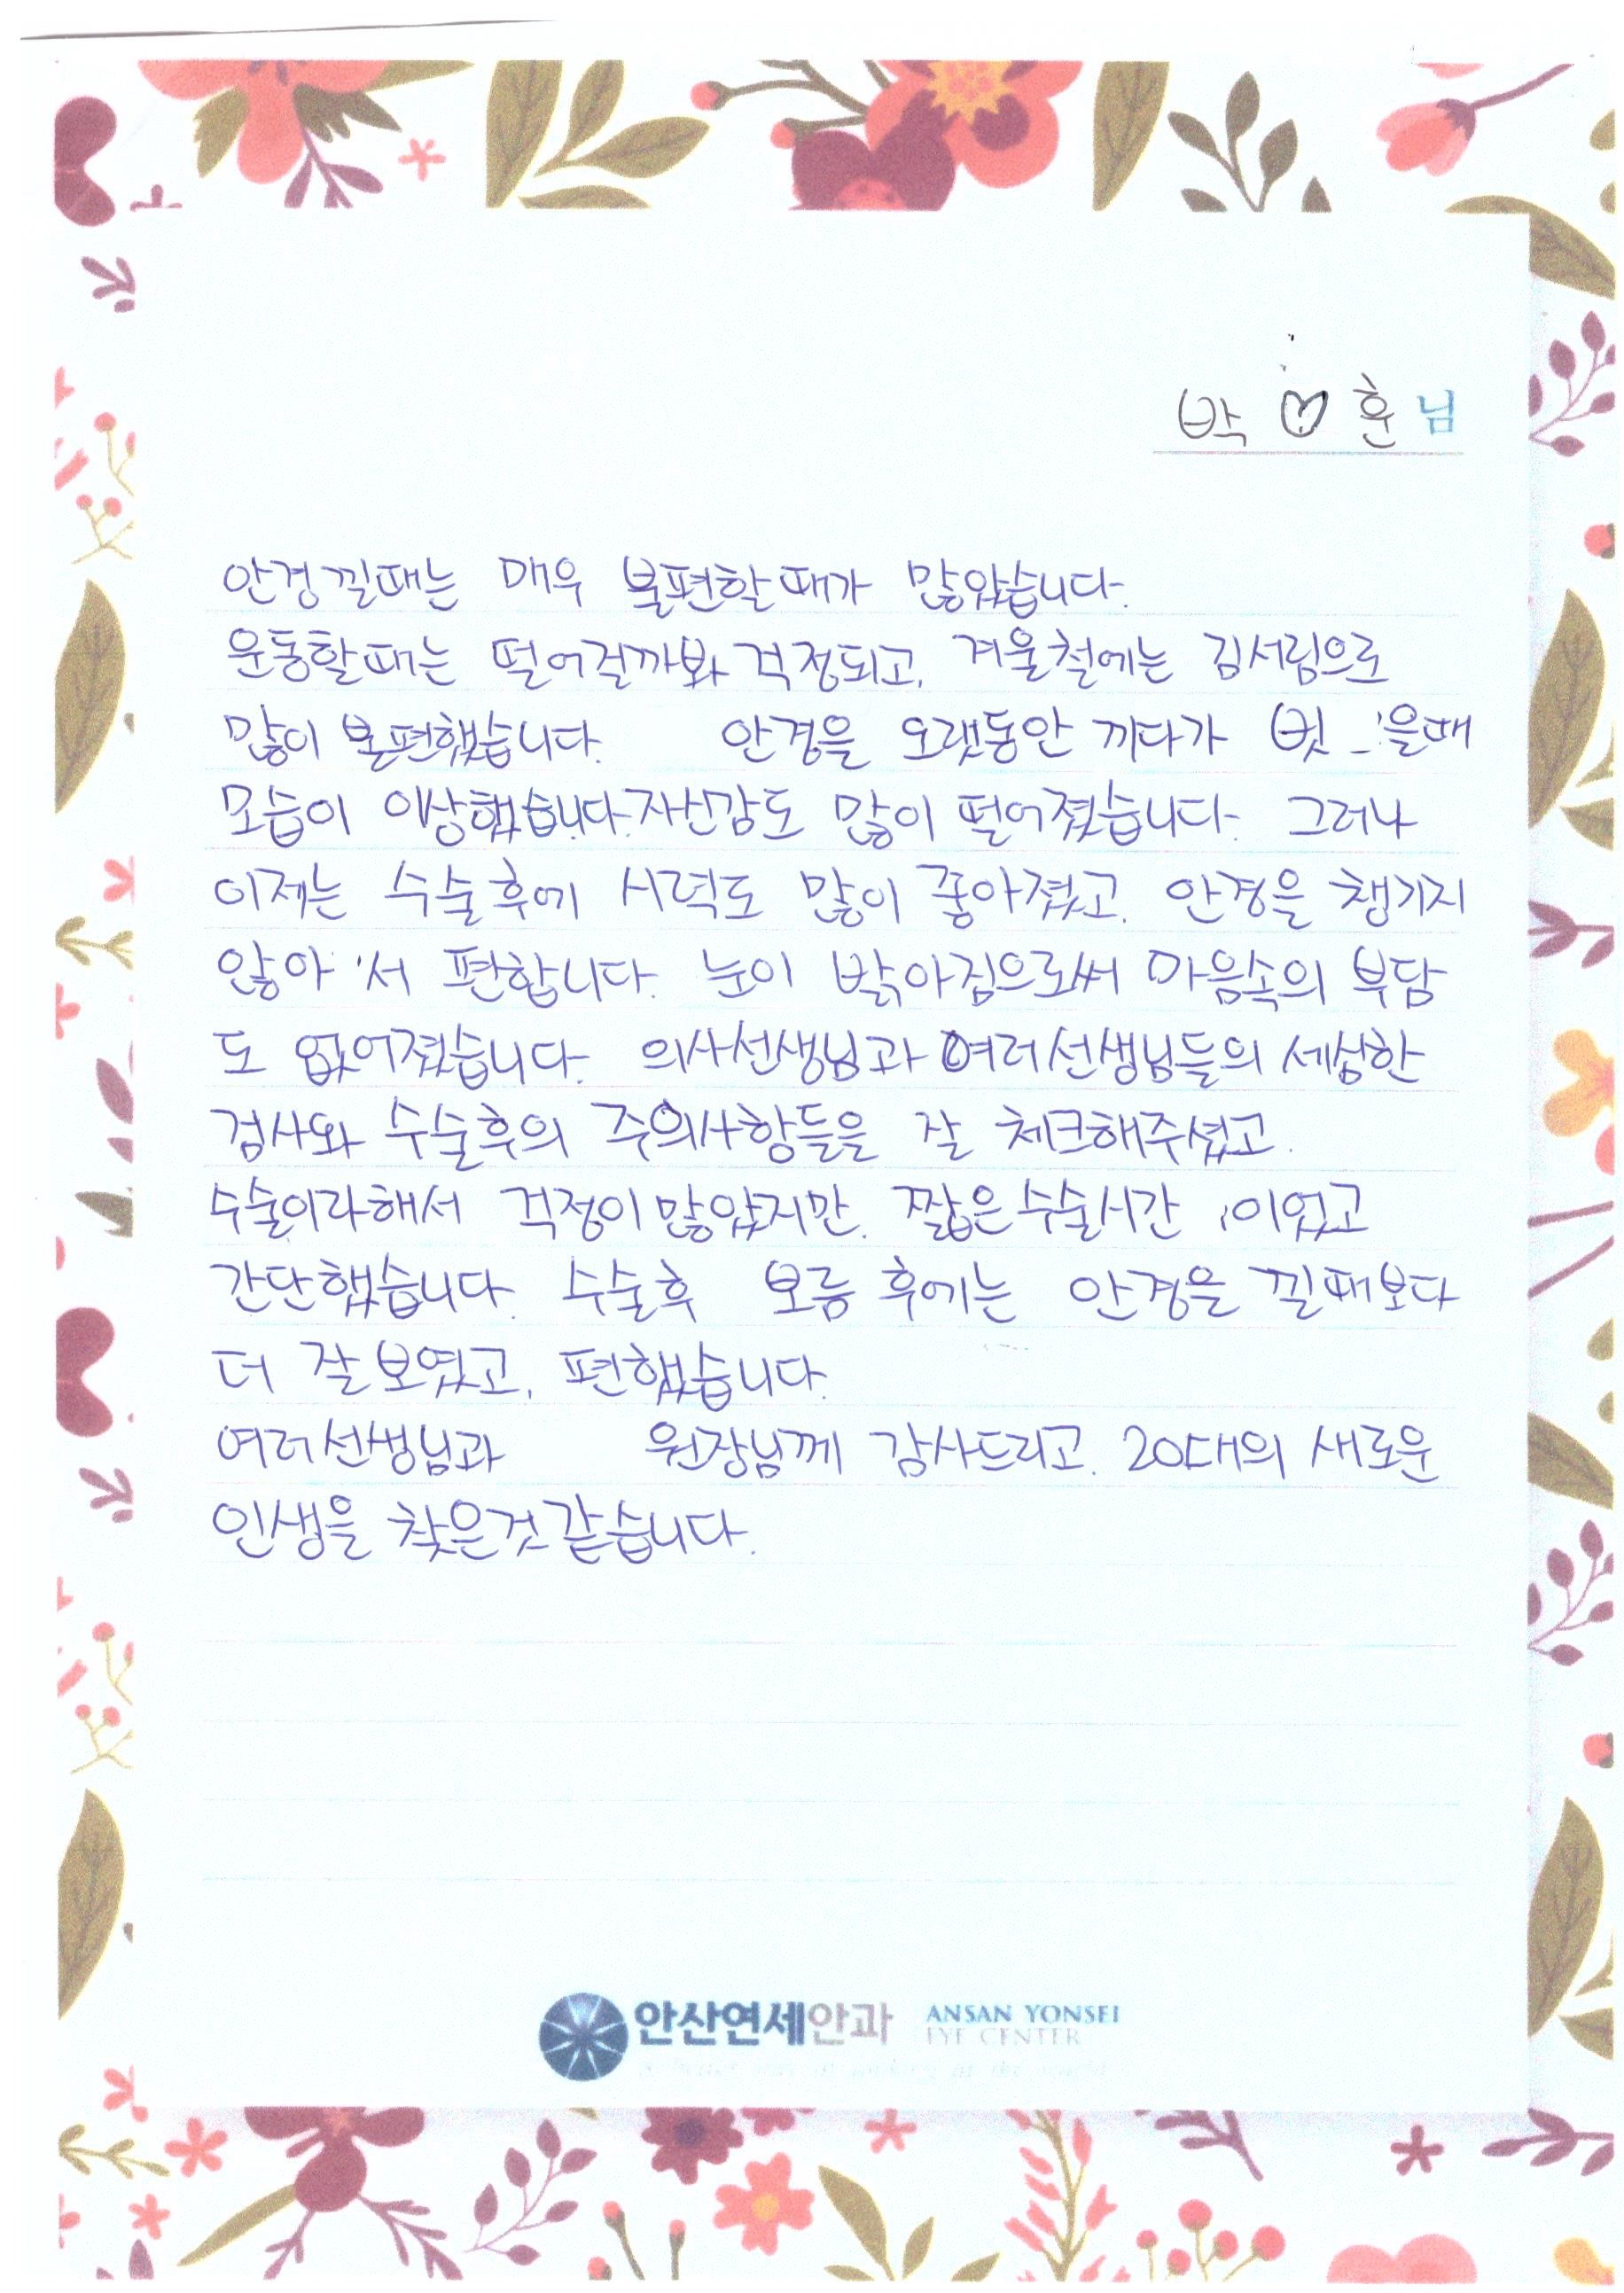 박 ♡ 훈 님
안경낄때는 매우 불편할때가 많았습니다.
운동할때는 떨어질까봐 걱정되고, 겨울철에는 김서림으로
많이 불편했습니다. 안경을 오랫동안 끼다가 벗을때
모습이 이상했습니다. 자신감도 많이 떨어졌습니다. 그러나
이제는 수술후에 시력도 많이 좋아졌고, 안경을 챙기지
않아서 편합니다. 눈이 밝아짐으로써 마음속의 부담
도 없어졌습니다. 의사선생님과 여러선생님들의 세심한
검사와 수술후의 주의사항들을 잘 체크해주셨고.
수술이라해서 걱정이 많았지만, 짧은수술시간이었고
간단했습니다. 수술후 보름 후에는 안경을 낄때보다
더 잘보였고, 편했습니다.
여러선생님과 원장님께 감사드리고, 20대의 새로운
인생을 찾은것 같습니다.
안산연세안과 ANSAN YONSEI
EYE CENTER